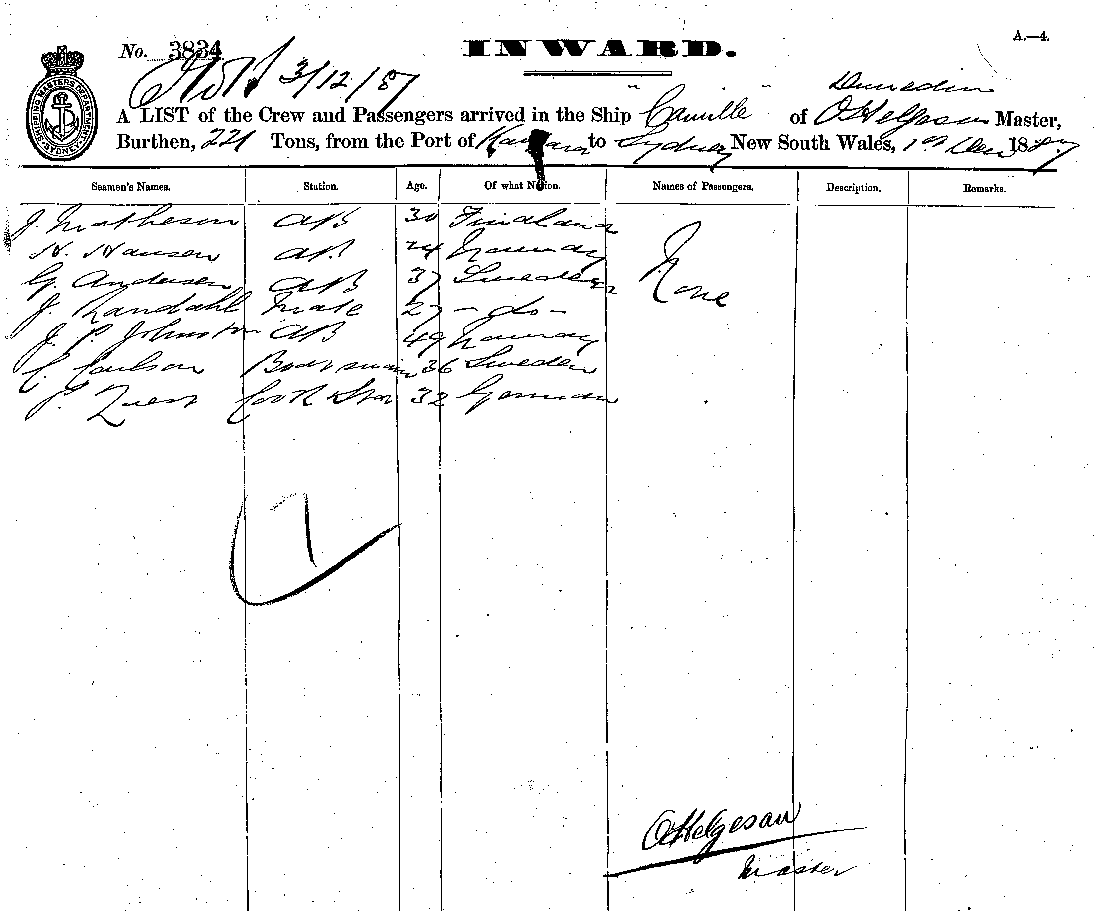 A.—4.
No. 3834 INWARD.
3/12/87
Dunedin
A LIST of the Crew and Passengers arrived in the Ship "Camille" of O Helgesen Master,
Burthen, 221 Tons, from the Port of to Sydney New South Wales, 1887
SHIPPING MASTERS DEPARTMENT SYDNEY
Seamen's Names. Station. Age. Of what Nation. Names of Passengers. Description. Remarks.
J. Matheson AB 30 Findland
H. Hansen AB 24 Norway None
G. Andersen AB 37 Sweden
J. Randahl Mate 27 - do -
J. P. Johnston AB 49 Norway
C. Carlson Boatswain 36 Sweden
J. Cook & Std 32 German
7
O Helgesen
Master